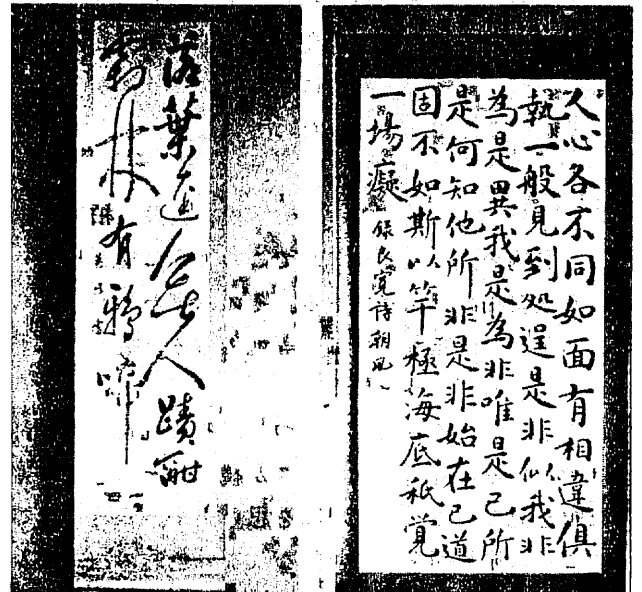 人心各不同如面有相違俱
執一般見到処逞是非似我非
為是異我是為非唯是己所
是何知他所非是非始在己道
固不如斯以竿極海底秖覚
一場癡 録良寛詩朝風
落葉人蹟
林有鴉啼